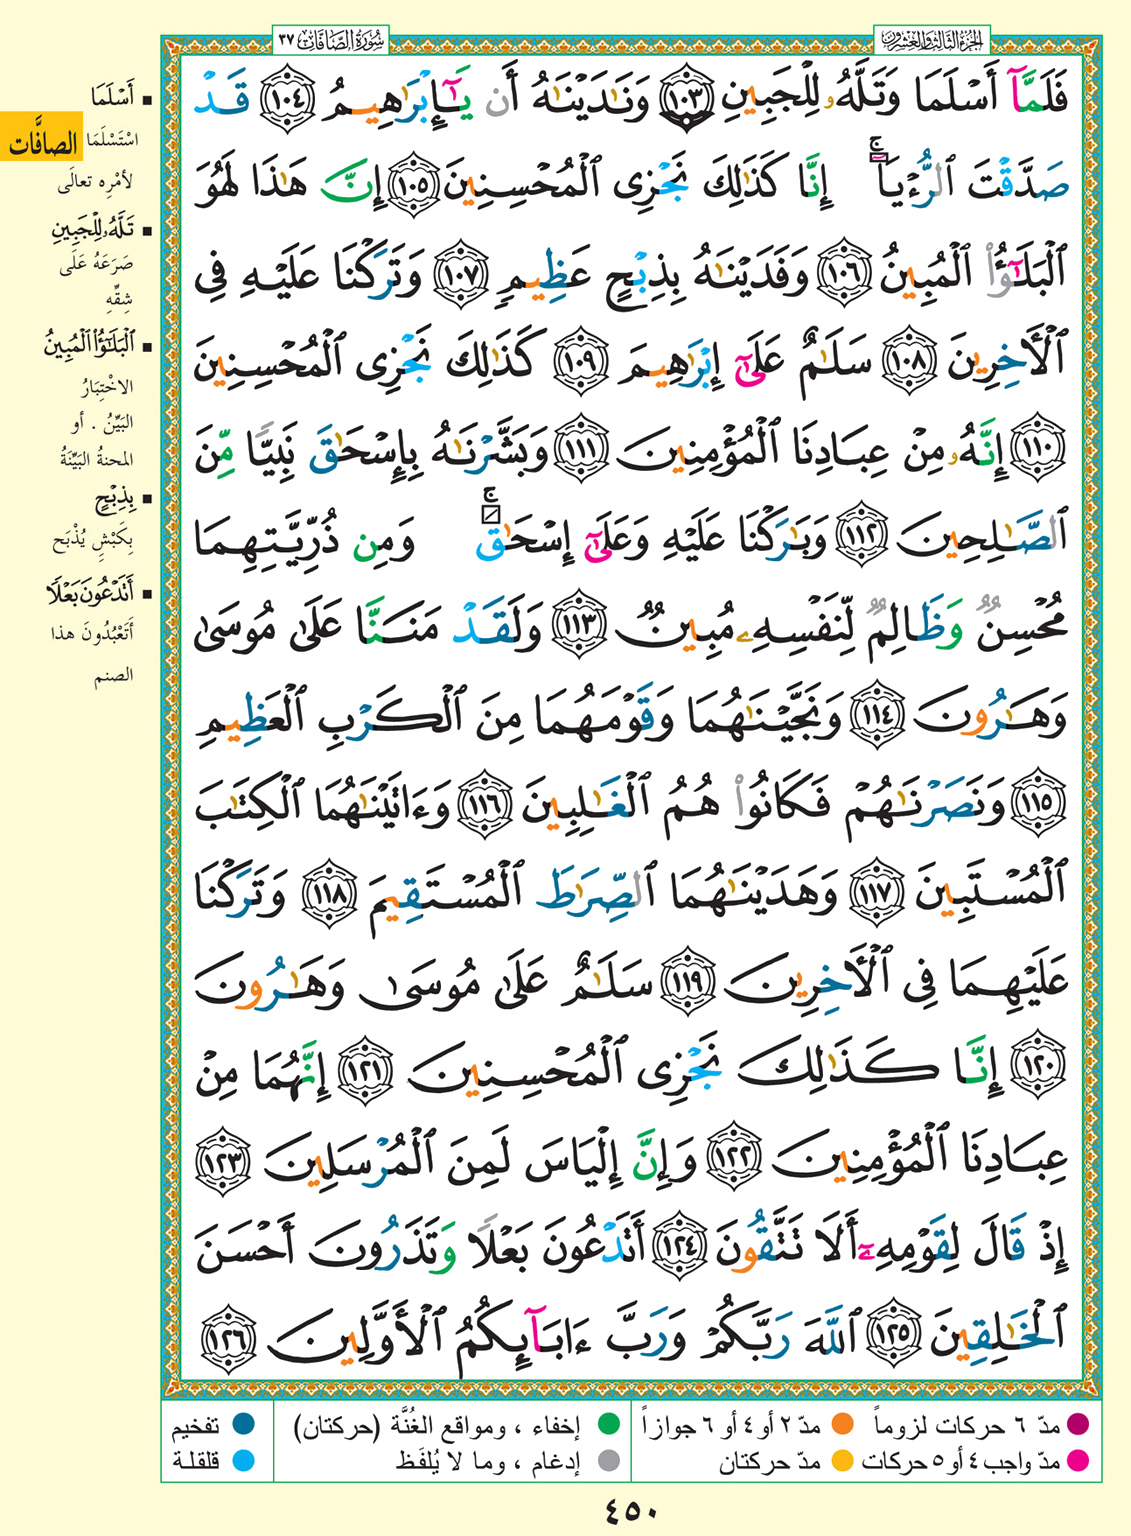 سُورَةُ الصَّافَات ٣٧
الجزء الثالث والعشرون
فَلَمَّآ أَسْلَمَا وَتَلَّهُۥ لِلْجَبِينِ ١٠٣ وَنَٰدَيْنَٰهُ أَن يَٰٓإِبْرَٰهِيمُ ١٠٤ قَدْ
صَدَّقْتَ ٱلرُّءْيَآ ۚ إِنَّا كَذَٰلِكَ نَجْزِى ٱلْمُحْسِنِينَ ١٠٥ إِنَّ هَٰذَا لَهُوَ
ٱلْبَلَٰٓؤُا۟ ٱلْمُبِينُ ١٠٦ وَفَدَيْنَٰهُ بِذِبْحٍ عَظِيمٍ ١٠٧ وَتَرَكْنَا عَلَيْهِ فِى
ٱلْأَخِرِينَ ١٠٨ سَلَٰمٌ عَلَىٰٓ إِبْرَٰهِيمَ ١٠٩ كَذَٰلِكَ نَجْزِى ٱلْمُحْسِنِينَ
١١٠ إِنَّهُۥ مِنْ عِبَادِنَا ٱلْمُؤْمِنِينَ ١١١ وَبَشَّرْنَٰهُ بِإِسْحَٰقَ نَبِيًّا مِّنَ
ٱلصَّٰلِحِينَ ١١٢ وَبَٰرَكْنَا عَلَيْهِ وَعَلَىٰٓ إِسْحَٰقَ ۚ وَمِن ذُرِّيَّتِهِمَا
مُحْسِنٌ وَظَالِمٌ لِّنَفْسِهِۦ مُبِينٌ ١١٣ وَلَقَدْ مَنَنَّا عَلَىٰ مُوسَىٰ
وَهَٰرُونَ ١١٤ وَنَجَّيْنَٰهُمَا وَقَوْمَهُمَا مِنَ ٱلْكَرْبِ ٱلْعَظِيمِ
١١٥ وَنَصَرْنَٰهُمْ فَكَانُوا۟ هُمُ ٱلْغَٰلِبِينَ ١١٦ وَءَاتَيْنَٰهُمَا ٱلْكِتَٰبَ
ٱلْمُسْتَبِينَ ١١٧ وَهَدَيْنَٰهُمَا ٱلصِّرَٰطَ ٱلْمُسْتَقِيمَ ١١٨ وَتَرَكْنَا
عَلَيْهِمَا فِى ٱلْأَخِرِينَ ١١٩ سَلَٰمٌ عَلَىٰ مُوسَىٰ وَهَٰرُونَ
١٢٠ إِنَّا كَذَٰلِكَ نَجْزِى ٱلْمُحْسِنِينَ ١٢١ إِنَّهُمَا مِنْ
عِبَادِنَا ٱلْمُؤْمِنِينَ ١٢٢ وَإِنَّ إِلْيَاسَ لَمِنَ ٱلْمُرْسَلِينَ ١٢٣
إِذْ قَالَ لِقَوْمِهِۦٓ أَلَا تَتَّقُونَ ١٢٤ أَتَدْعُونَ بَعْلًا وَتَذَرُونَ أَحْسَنَ
ٱلْخَٰلِقِينَ ١٢٥ ٱللَّهَ رَبَّكُمْ وَرَبَّ ءَابَآئِكُمُ ٱلْأَوَّلِينَ ١٢٦
الصافَّات
أَسْلَمَا
اسْتَسْلَمَا
لأمْرِه تعالَى
تَلَّهُۥ لِلْجَبِينِ
صَرَعَهُ عَلَى
شِقِّهِ
ٱلْبَلَٰٓؤُا۟ ٱلْمُبِينُ
الاخْتِبَارُ
البَيِّنُ . أو
المحنةُ البَيِّنَةُ
بِذِبْحٍ
بِكَبْشٍ يُذْبَح
أَتَدْعُونَ بَعْلًا
أَتَعْبُدُونَ هذا
الصنم
مدّ ٦ حركات لزوماً
مدّ ٢ أو ٤ أو ٦ جوازاً
إخفاء ، ومواقع الغُنَّة (حركتان)
تفخيم
مدّ واجب ٤ أو ٥ حركات
مدّ حركتان
إدغام ، وما لا يُلفَظ
قلقلة
٤٥٠